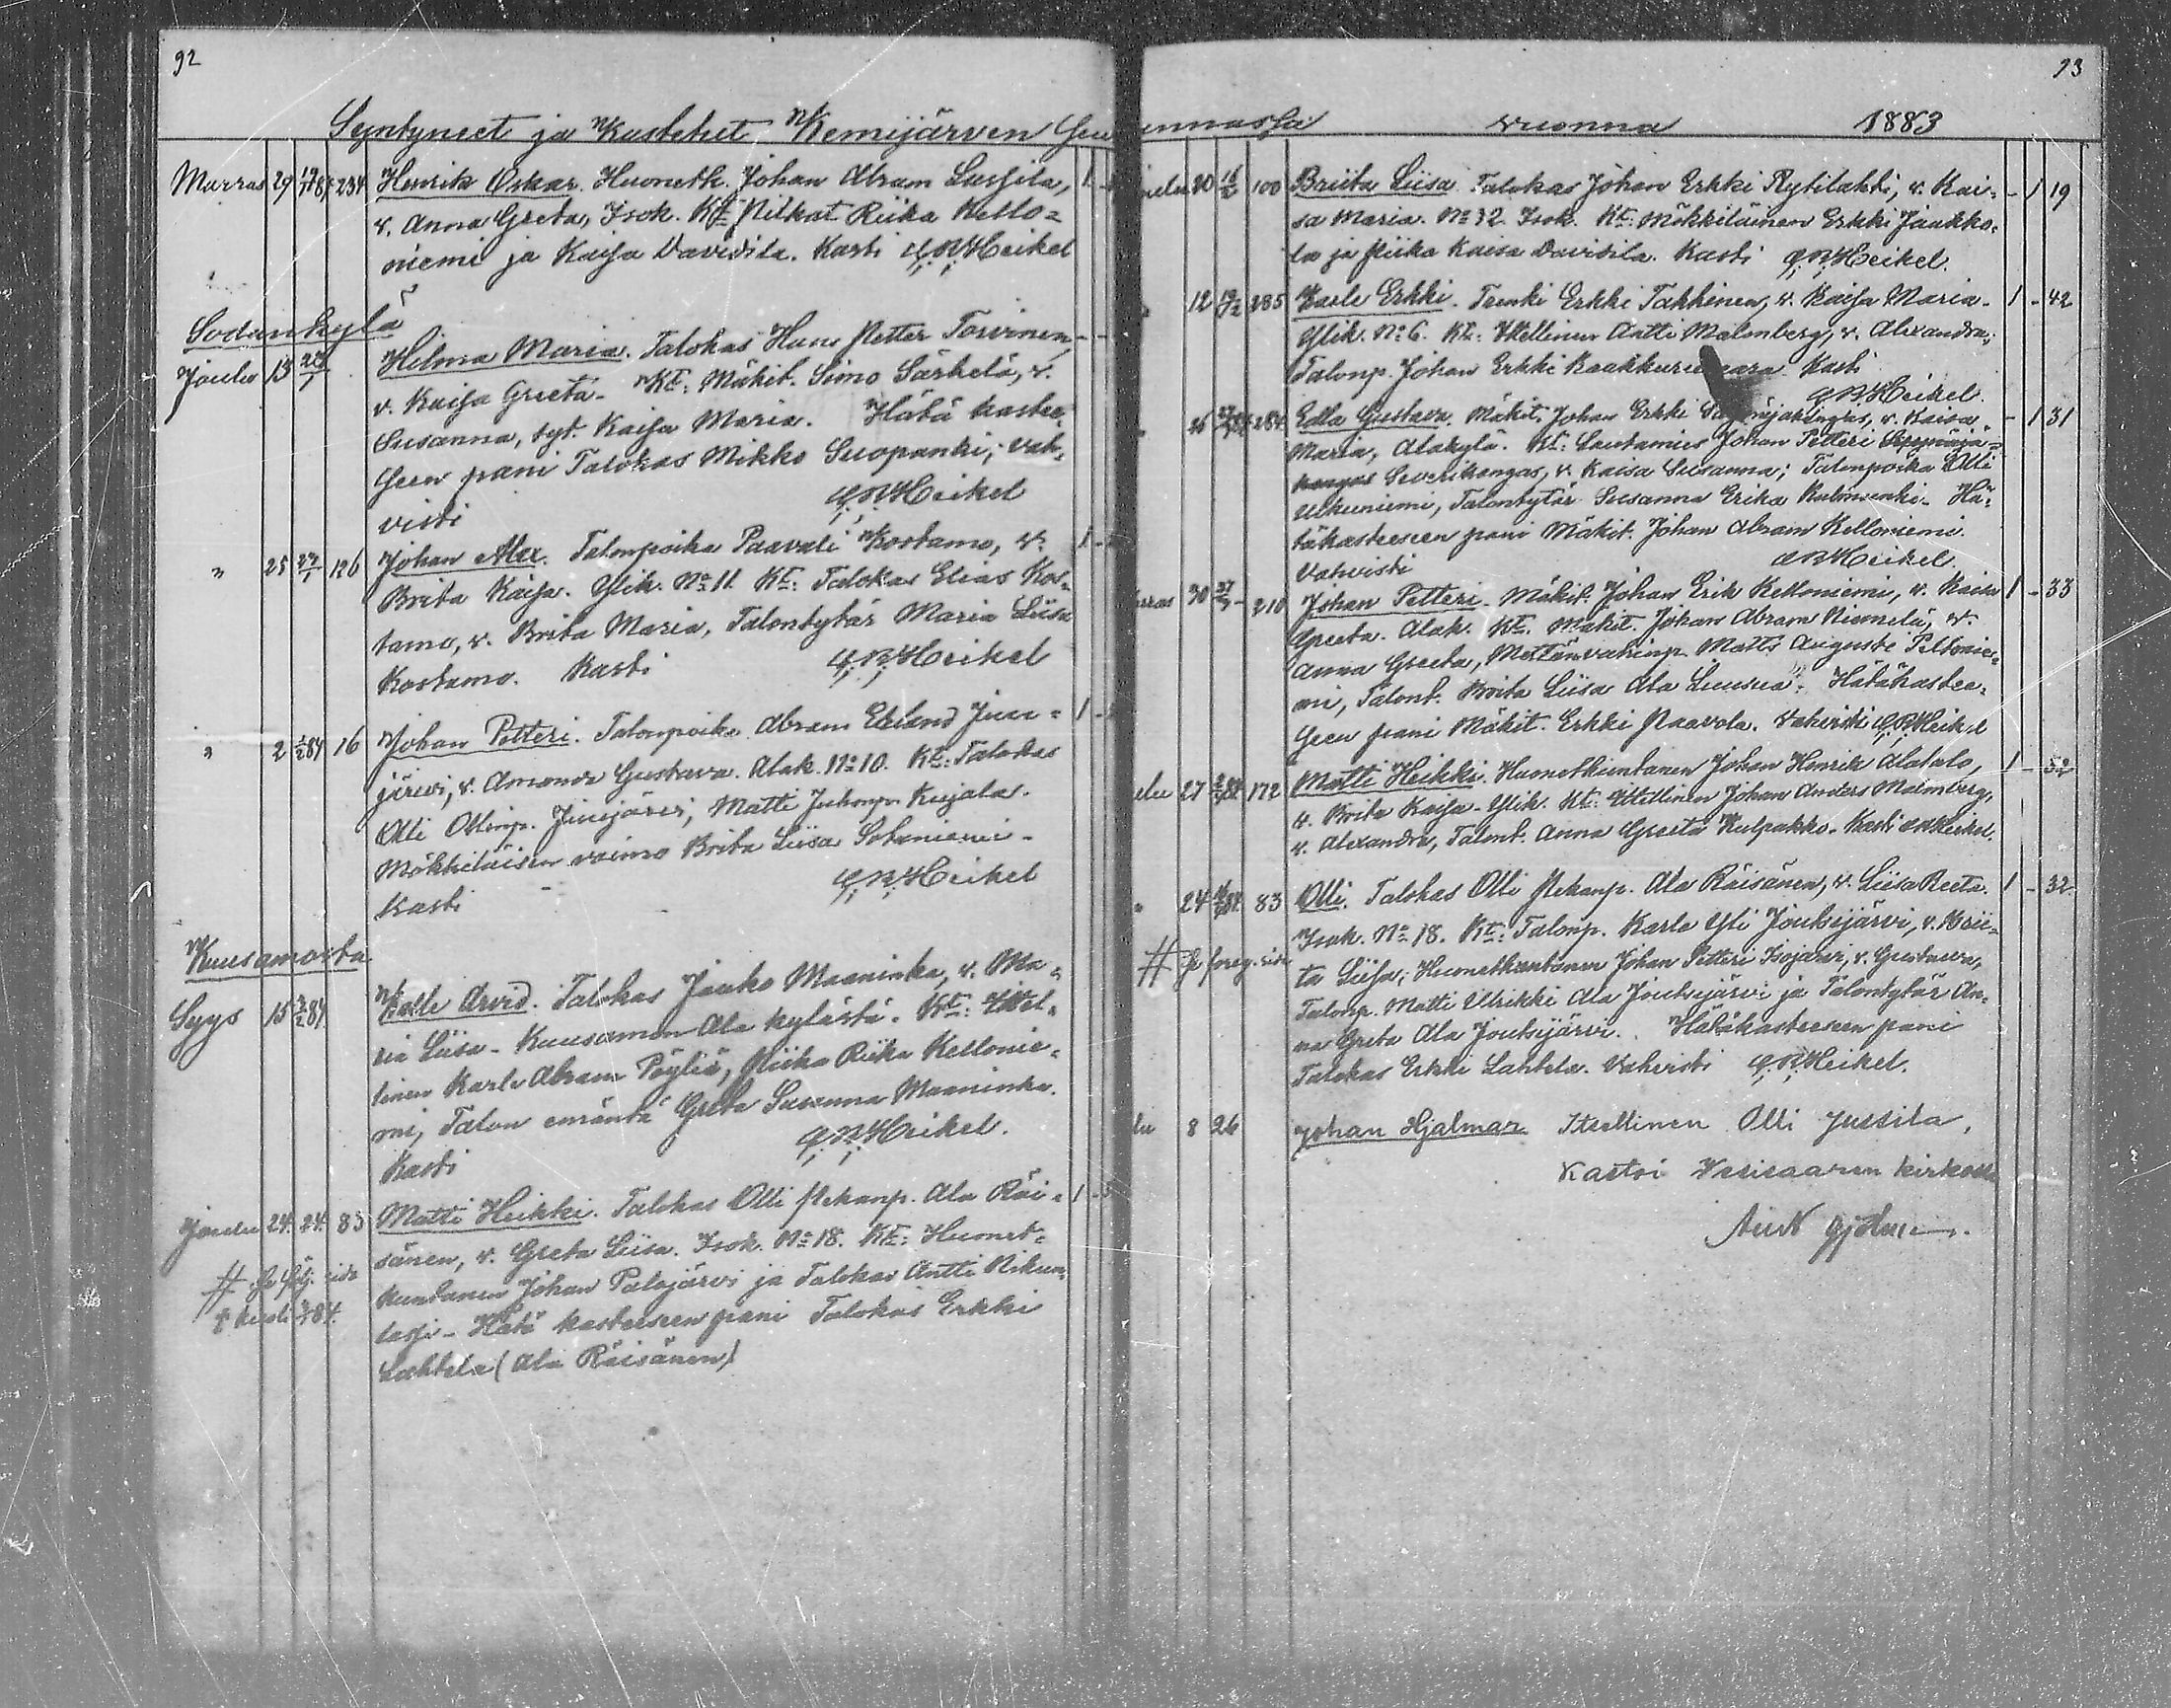 92
Syntyneet ja Kastetut Kemijärven Seu
Marras 29 234 Henrik Oskar. Huonetk. Johan Abram Lassila, 1
v. Anna Greta, Isok. Kt. Piikat Riika Kello=
niemi ja Kaisa Davidila. Kasti Heikel
Sodankylä
Joulu 13 Helma Maria. Talokas Hans Petter Torvinen,
v. Kaisa Greeta. Kt: Mäkit. Simo Särkelä, v.
Susanna, tyt. Kaisa Maria. Hätä kastee=
seen pani Talokas Mikko Suopanki; Vah=
visti Heikel
" 25 27/1 126 Johan Alex. Talonpoika Paavali Kostamo, v. 1
Brita Kaisa. Ylik. No 11. Kt: Talokas Elias Kos=
tamo, v. Brita Maria, Talontytär Maria Liisa
Kostamo. Kasti Heikel
" 2 84 16 Johan Petteri. Talonpoika Abram Eeland Juu= 1
järvi, v. Amanda Gustava. Alak. No 10. Kt: Talokas
Olli Ollinp. Juujärvi, Matti Juhonp. Kujala.
Mökkiläisen vaimo Brita Liisa Sotaniemi.
Kasti Heikel
Kuusamosta
Syys 15 84 Kalle Arvid. Talokas Jaako Maaninka, v. Ma=
ria Liisa. Kuusamon Ala kylästä. Kt: Itsel=
linen Karle Abram Pöyliö, Piika Riika Kellonie=
mi, Talon emäntä Greta Susanna Maaninka.
Kasti Heikel.
Joulu 24 24 83 Matti Heikki. Talokas Olli Pekanp. Ala Räi= 1
sänen, v. Greta Liisa. Isok. No 18. Kt: Huonet=
kuntanen Johan Palojärvi ja Talokas Antti Niku=
lassi. Hätä kasteeseen pani Talokas Erkki
Lahtela (Ala Räisänen)
93
unnassa vuonna 1883
20 100 Briita Liisa. Talokas Johan Erkki Rytilahti, v. Kai= - 1 19
sa Maria. No 32 Isok. Kt: Mökkiläinen Erkki Jaakko=
la ja Piika Kaisa Davidila. Kasti Heikel.
12 285 Karle Erkki. Trenki Erkki Takkinen, v. Kaisa Maria. 1 - 42
Ylik. No 6. Kt: Itsellinen Antti Malmberg, v. Alexandra,
Talonp. Johan Erkki Kasti
Heikel.
26 284 Edla Gustava. Mäkit. Johan Erkki v. Kaisa - 1 31
Maria, Alakylä. Kt: Lautamies Johan Petteri
kangas Severikangas, v. Kaisa Susanna; Talonpoika Olli
Ulkuniemi, Talontytär Susanna Erika Kulonsenki. Hä=
täkasteeseen pani Mäkit. Johan Abram Kelloniemi.
Vahvisti Heikel.
rras 30 210 Johan Petteri. Mäkit. Johan Erik Kelloniemi, v. Kaisa 1 - 33
Greeta. Alak. Kt. Mäkit. Johan Abram Niemelä, v.
Anna Greeta, Metsänvahinp. Matts Auguste Peltonie=
mi, Talont. Brita Liisa Ala Luusua. Hätäkastee=
seen pani Mäkit. Erkki Paavola. Vahvisti Heikel
ulu 27 172 Matti Heikki. Huonetkuntanen Johan Henrik Alatalo, 1 - 52
v. Brita Kaisa. Ylik. Kt: Itsellinen Johan Anders Malmberg,
v. Alexandra, Talont. Anna Greeta Kulpakko. Kasti Heikel.
24 83 Olli. Talokas Olli Pekanp. Ala Räisänen, v. Liisa Reeta. 1 - 32.
Isok. No 18. Kt: Talonp. Karle Yli Joutsijärvi, v. Brii=
# foreg. sida
ta Liisa; Huonetkuntanen Johan Petteri Isojärvi, v. Gustava,
Talonp. Matti Ulrikki Ala Joutsijärvi ja Talontytär An=
na Greta Ala Joutsijärvi. Hätäkasteeseen pani
Talokas Erkki Lahtela. Vahvisti Heikel.
lu 8 26 Johan Hjalmar Itsellinen Olli Jussila,
Kastoi Kirkossa